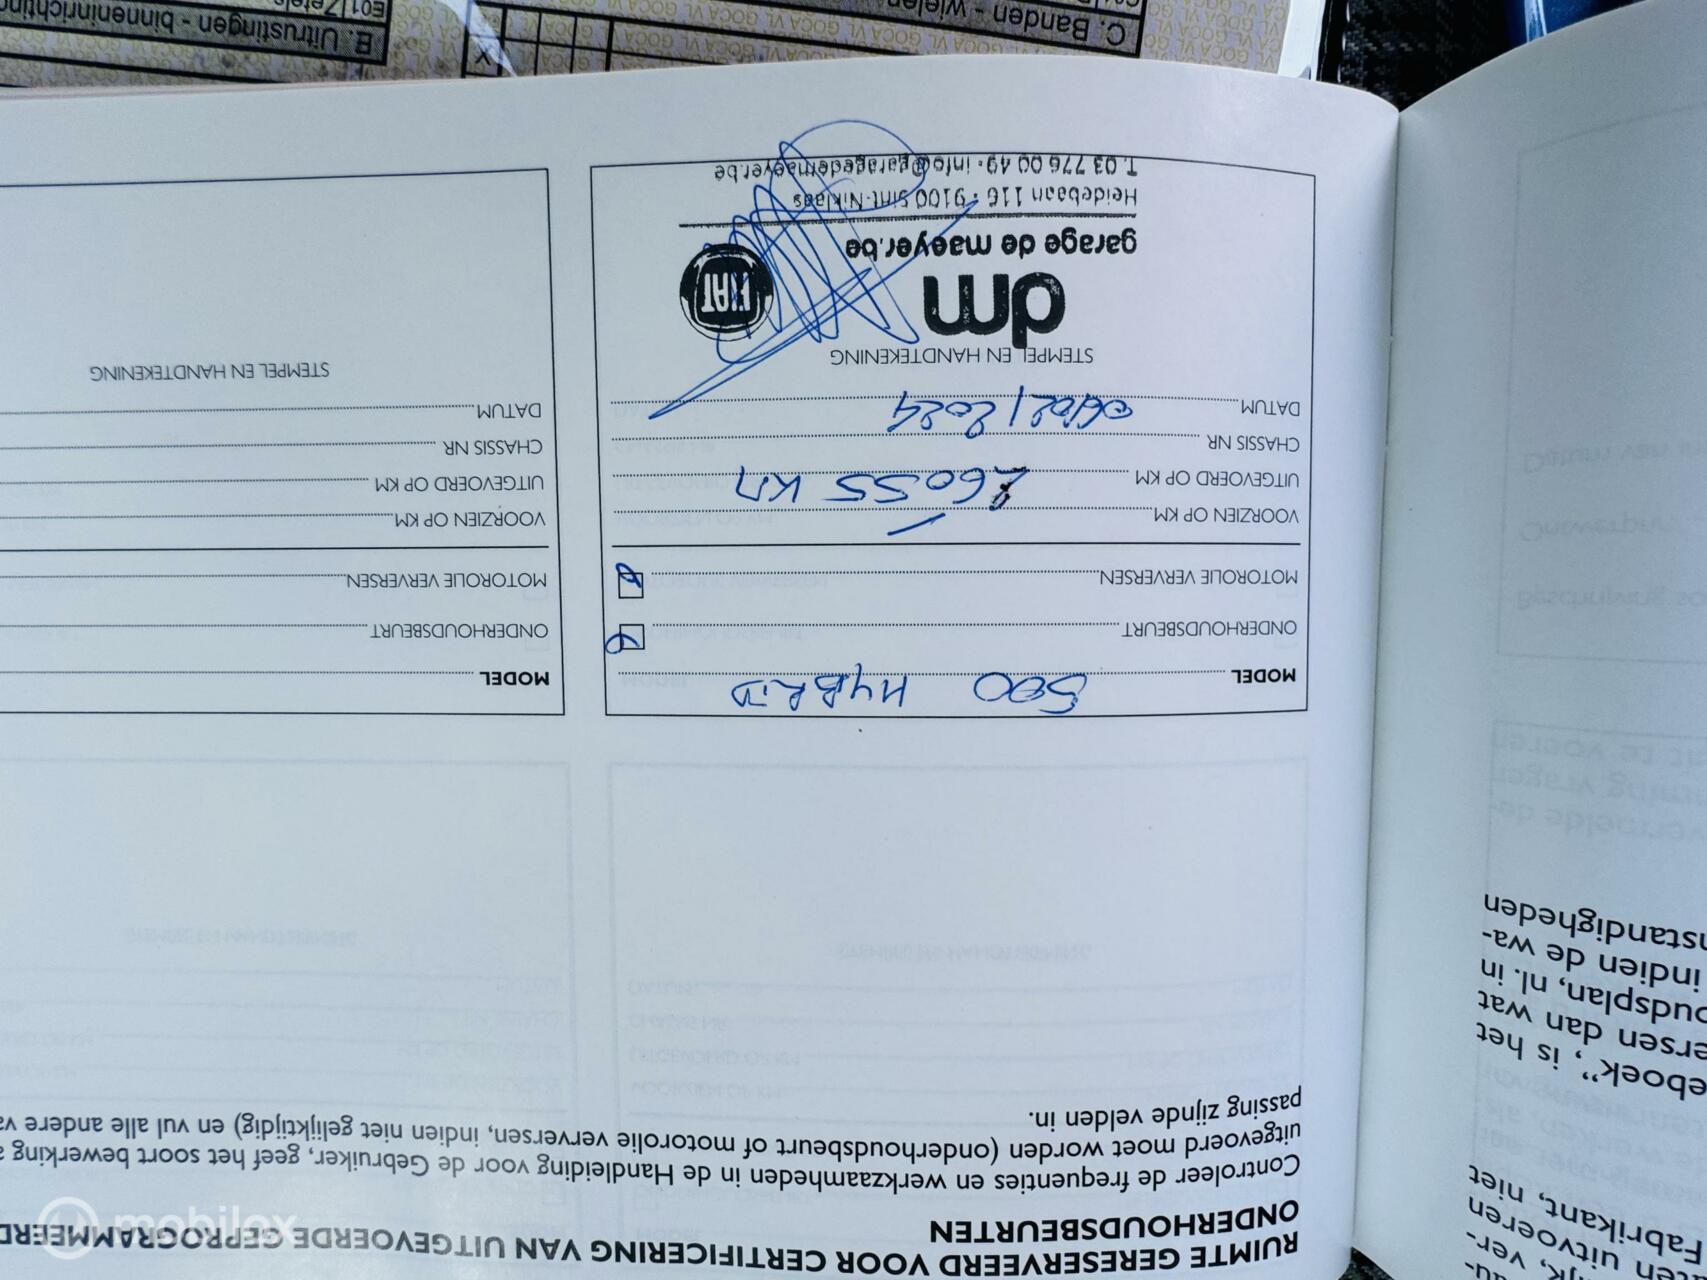 RUIMTE GERESERVEERD VOOR CERTIFICERING VAN UITGEVOERDE GEPROGRAMMEERD
ONDERHOUDSBEURTEN
Controleer de frequenties en werkzaamheden in de Handleiding voor de Gebruiker, geef het soort bewerking a
uitgevoerd moet worden (onderhoudsbeurt of motorolie verversen, indien niet gelijktijdig) en vul alle andere va
passing zijnde velden in.
MODEL 500 HYBRID
ONDERHOUDSBEURT
MOTOROLIE VERVERSEN
VOORZIEN OP KM
UITGEVOERD OP KM 26055 KM
CHASSIS NR
DATUM 06/02/2024
STEMPEL EN HANDTEKENING
dm
FIAT
garage de maeyer.be
Heidebaan 116 - 9100 Sint-Niklaas
T. 03 776 00 49 - info@garagedemaeyer.be
MODEL
ONDERHOUDSBEURT
MOTOROLIE VERVERSEN
VOORZIEN OP KM
UITGEVOERD OP KM
CHASSIS NR
DATUM
STEMPEL EN HANDTEKENING
uitvoeren
Fabrikant, niet
eboek", is het
ersen dan wat
oudsplan, nl. in
indien de wa-
nstandigheden
C. Banden - wielen
E. Uitrustingen - binneninrichting
E01 Zetels
X
GOCA VL GOCA VL GOCA VL
mobilox